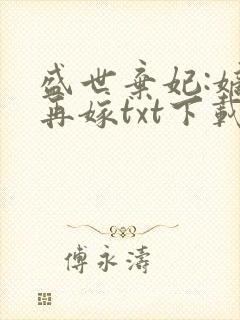 盛世弃妃:嫡
再嫁txt下載
傅永濤